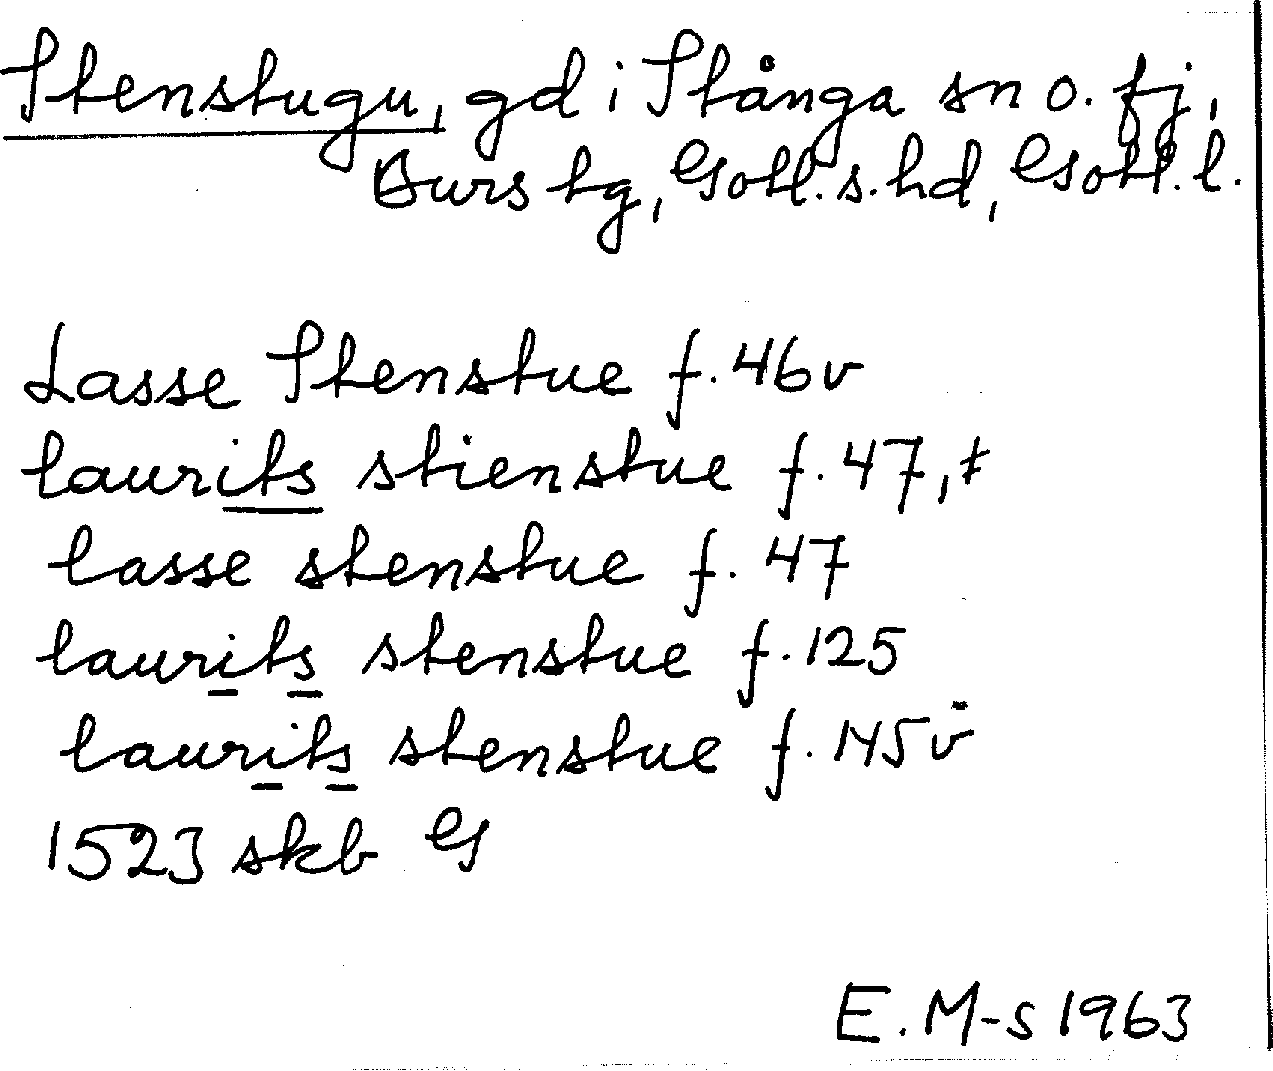 Stenstugu, gd i Stånga sn o. fj,
Burs tg, Gotl. s. hd, Gotl. l.
Lasse Stenstue f. 46v
laurits stienstue f. 47, ŧ
lasse stenstue f. 47
laurits stenstue f. 125
laurits stenstue f. 145v
1523 skb G
E. M-s 1963